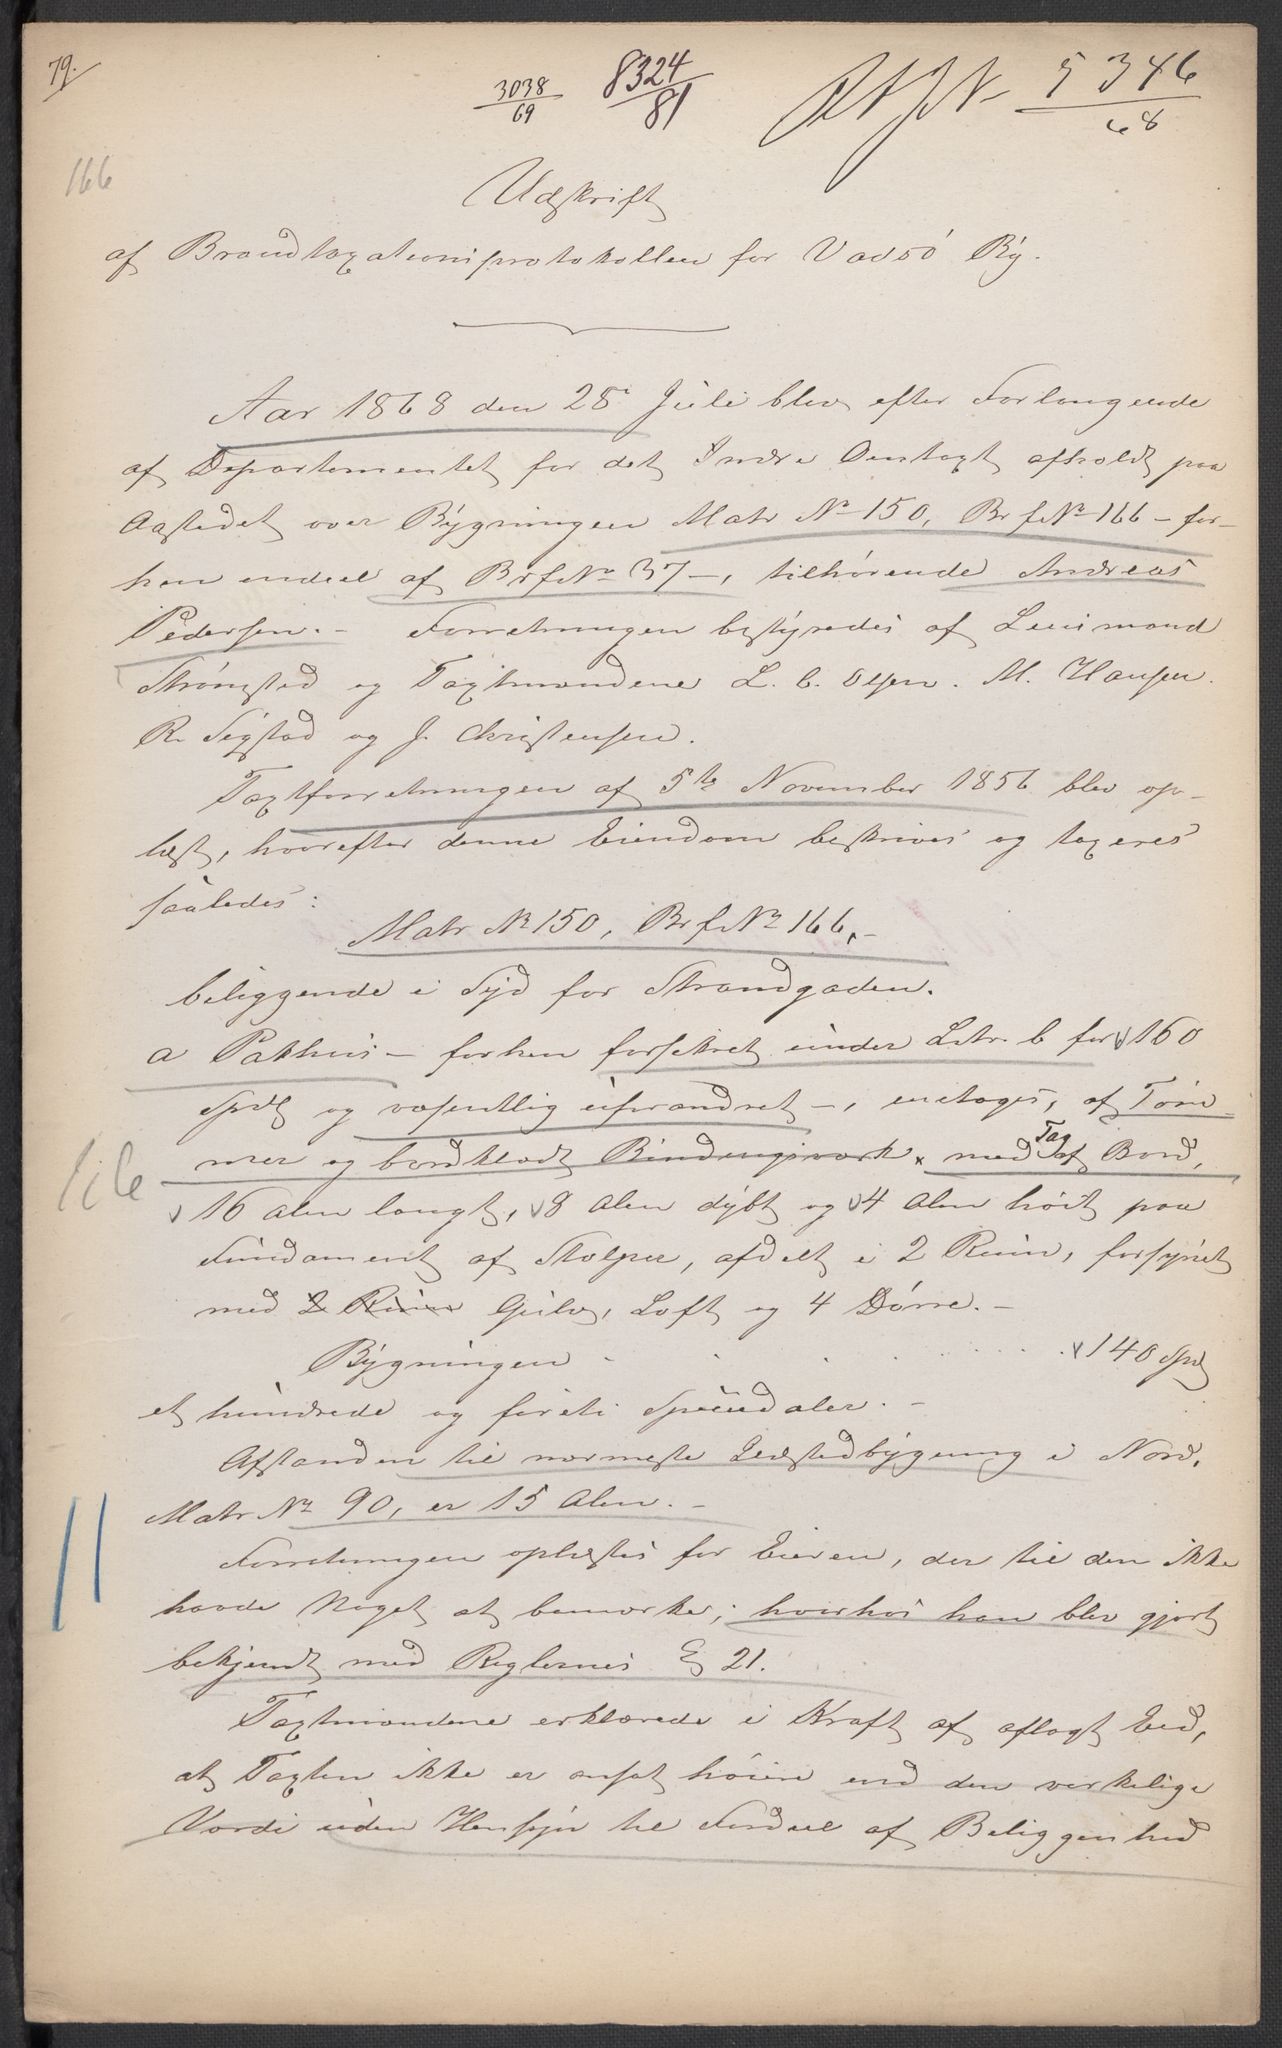 79.
3038/69 8324/81 5346/68
166
Udskrift
af Brandtaxationsprotokollen for Vadsö By.
Aar 1868 den 28 Juli blev efter Forlangende
af Departementet for det Indre Omtaxt afholdt paa
Aastedet over Bygningen Matr No 150, Brf No 166 - for-
hen endeel af Brf No 37 -, tilhørende Andreas
Pedersen. - Forretningen bestyredes af Lensmand
Strömsted og Taxtmændene L. C. Olsen. M. Hansen.
R. Sigstad og J. Christensen.
Taxtforretningen af 5te November 1856 blev op-
læst, hvorefter denne Eiendom beskrives og taxeres
saaledes:
Matr No 150, Brf No 166,-
beliggende i Syd for Strandgaden.
a Pakhus - forhen forsikret under Litr. b for 160
Spdl og væsentlig uforandret -, enetages, af Töm
mer og bordklædt Bindingsværk x med Tag af Bord,
166
16 Alen langt, 8 Alen dybt og 4 Alen höit paa
Fundament af Stolper, afdelt i 2 Rum, forsynet
med 2 Rum Gulv, Loft og 4 Dörre. -
Bygningen - . . . . . 140 Spd
et hundrede og förti Speciedaler. -
Afstanden til nærmeste Ildstedbygning i Nord,
Matr No 90, er 15 Alen. -
Forretningen oplæstes for Eieren, der til den ikke
havde Noget at bemærke; hvorhos han blev gjort
bekjendt med Reglernes § 21.
Taxtmændene erklærede i Kraft af aflagt Eed,
at Taxten ikke er ansat höiere end den virkelige
Værdi uden Hensyn til Fordeel af Beliggenhed